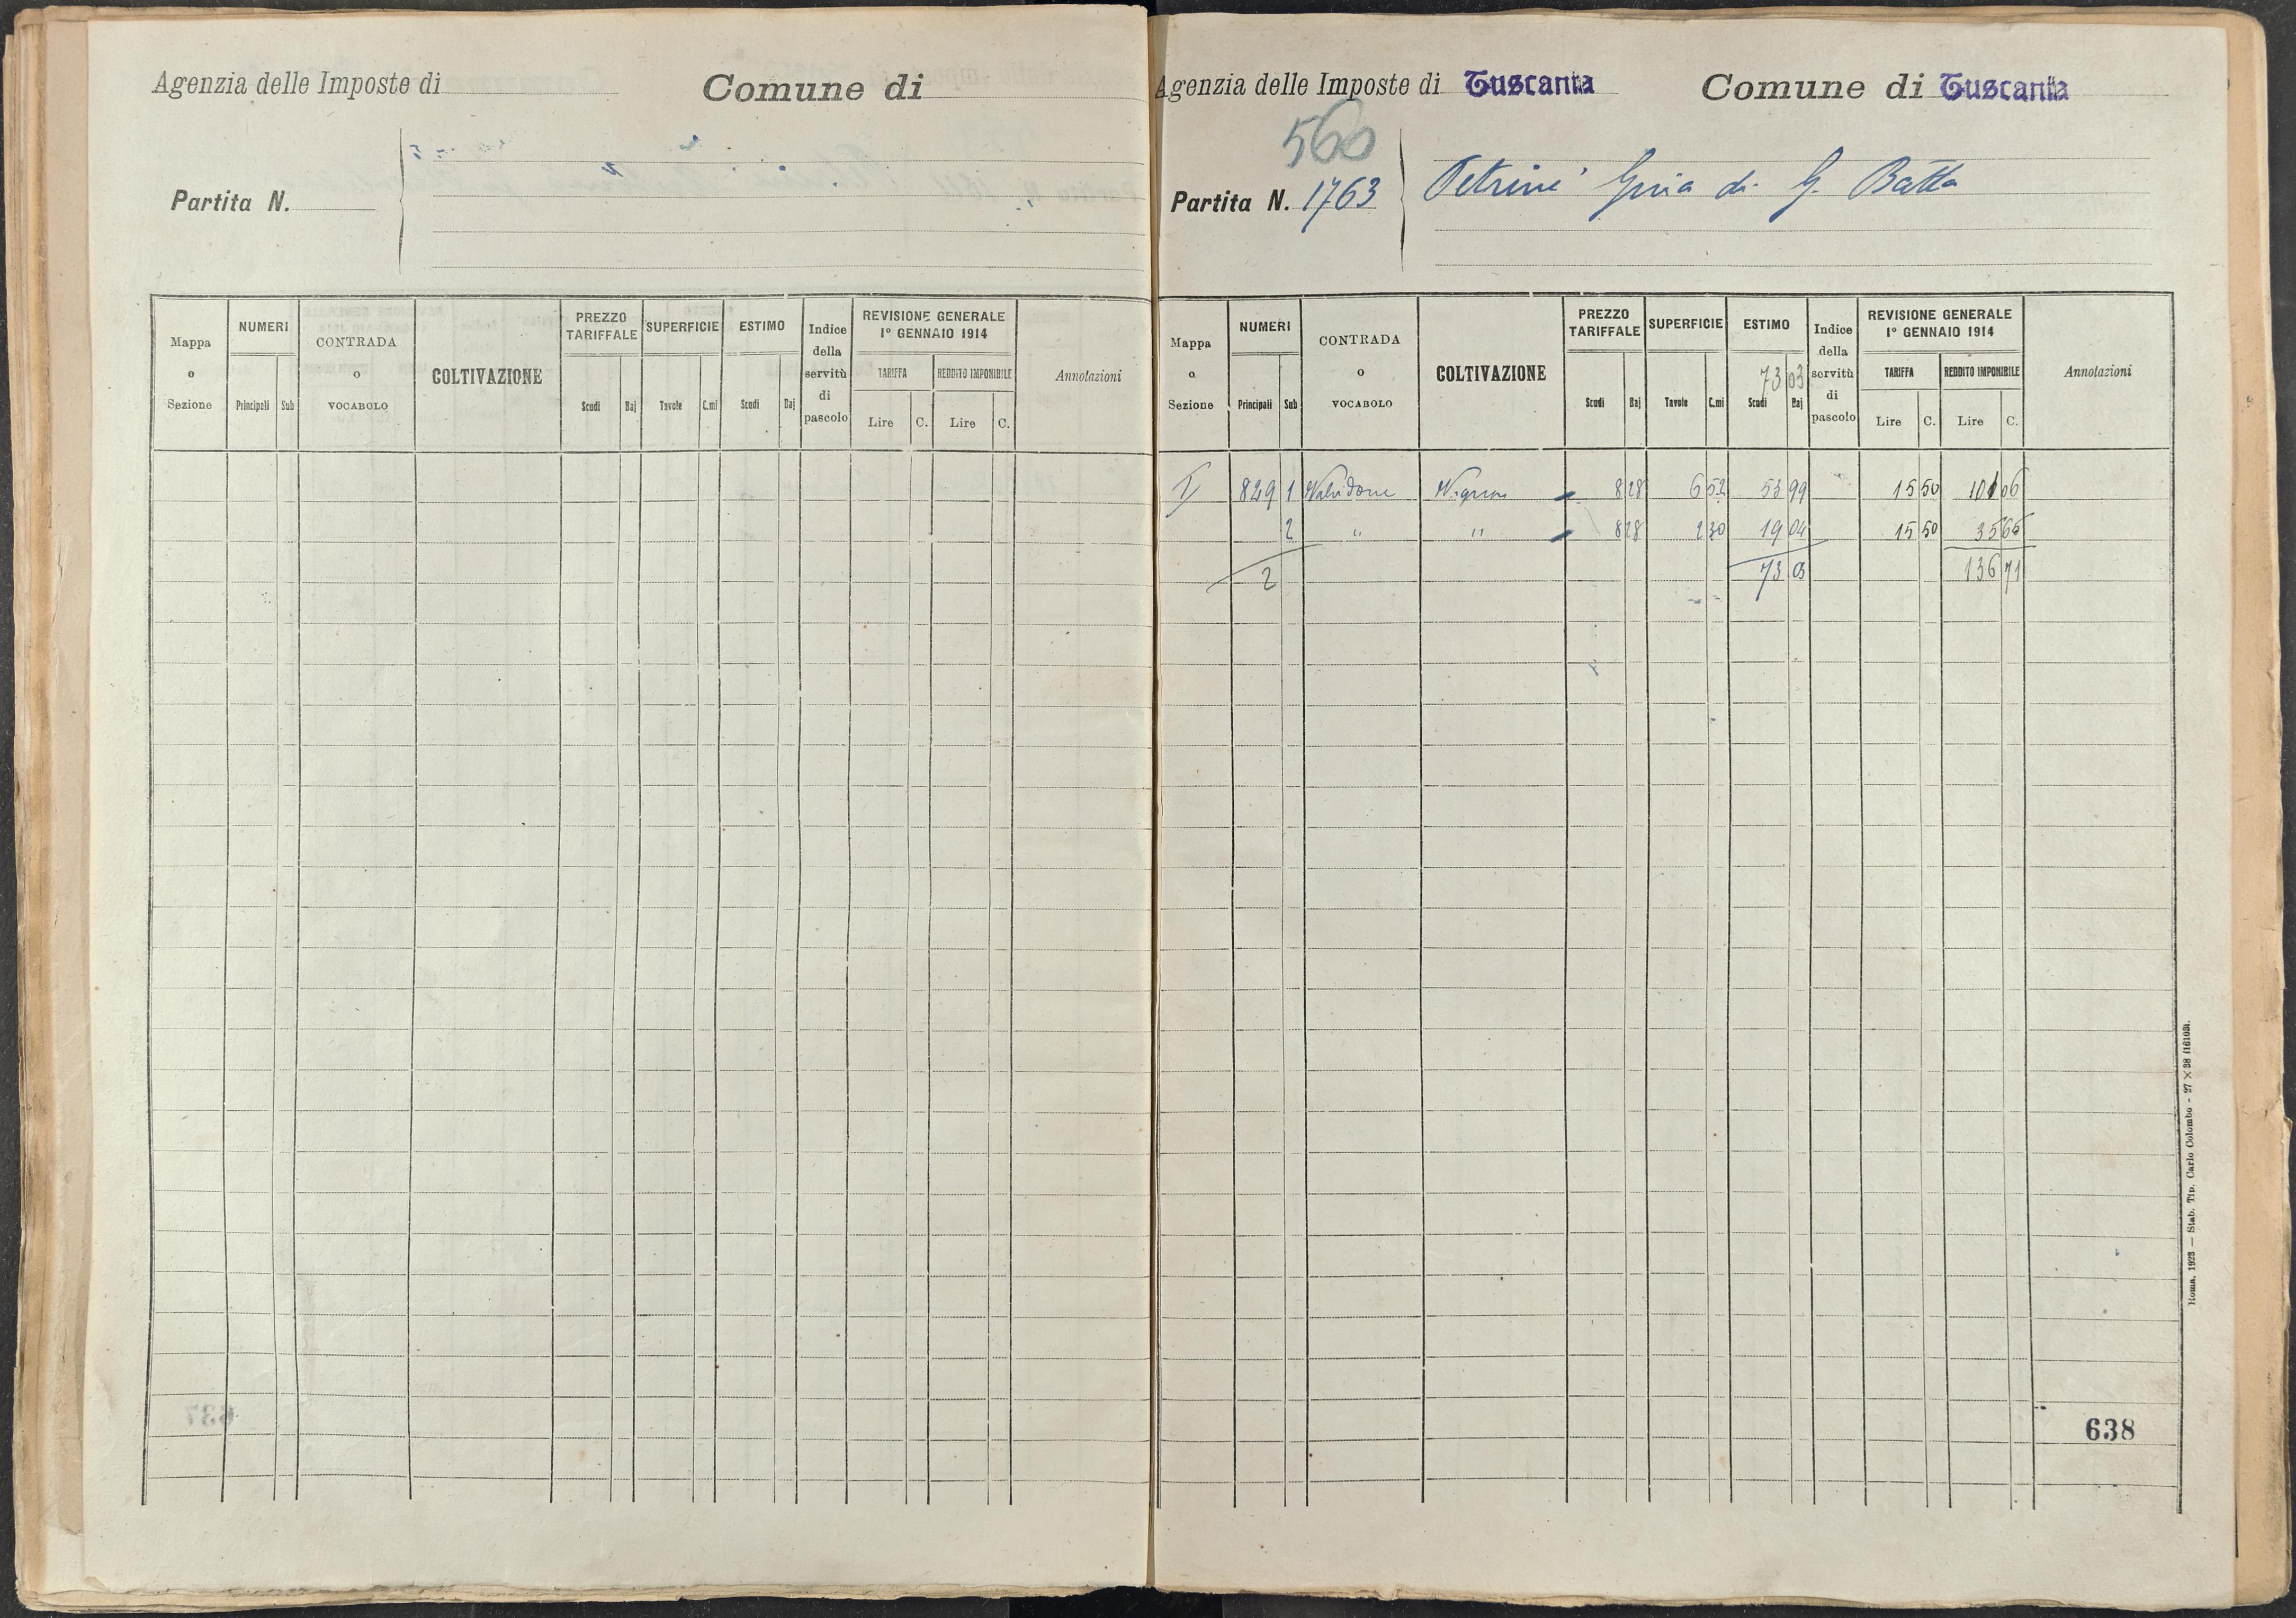 Agenzia delle Imposte di
Comune di
Partita N.
Mappa o Sezione
NUMERI
Principali
Sub
CONTRADA o VOCABOLO
COLTIVAZIONE
PREZZO TARIFFALE
Scudi
Baj
SUPERFICIE
Tavole
C.mi
ESTIMO
Scudi
Baj
Indice della servitù di pascolo
REVISIONE GENERALE
1° GENNAIO 1914
TARIFFA
REDDITO IMPONIBILE
Lire
C.
Lire
C.
Annotazioni
637
Agenzia delle Imposte di Tuscania
Comune di Tuscania
560
Partita N. 1763
Petrini Gina di G. Batta
Mappa o Sezione
NUMERI
Principali
Sub
CONTRADA o VOCABOLO
COLTIVAZIONE
PREZZO TARIFFALE
Scudi
Baj
SUPERFICIE
Tavole
C.mi
ESTIMO
73 03
Scudi
Baj
Indice della servitù di pascolo
REVISIONE GENERALE
1° GENNAIO 1914
TARIFFA
REDDITO IMPONIBILE
Lire
C.
Lire
C.
Annotazioni
829 1 8 28 6 52 53 99 15 50 101 06
2 " " 8 28 2 30 19 04 15 50 35 65
2 73 03 136 71
638
Roma, 1923 — Stab. Tip. Carlo Colombo - 27 × 38 (16103).